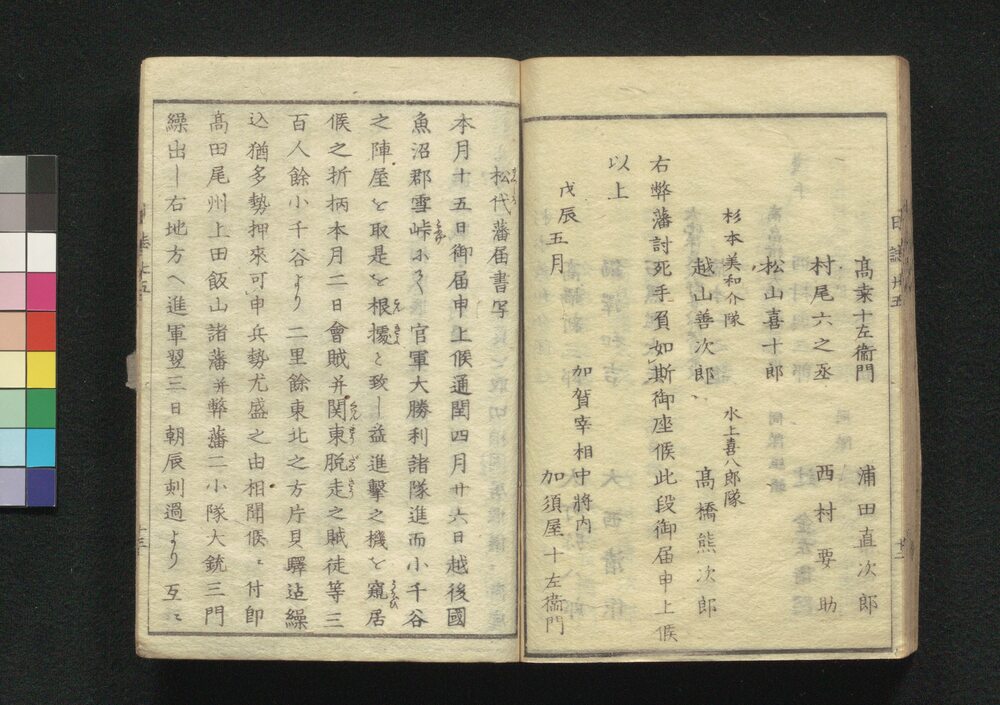 髙桒十左衞門
浦田直次郎
村尾六之丞
西村要助
松山喜十郎
杉本美和介隊
水上喜八郎隊
越山善次郎
髙橋熊次郎
右弊藩討死手負如斯御座候此段御届申上候
以上
戊辰五月
加賀宰相中將内
加須屋十左衞門
日誌 卅五
松代藩届書写
本月十五日御届申上候通閏四月廿六日越後國
魚沼郡雪峠ふて官軍大勝利諸隊進而小千谷
之陣屋を取是を根據と致し益進擊之機を窺居
候之折柄本月二日會賊并関東脱走之賊徒等三
百人餘小千谷より二里餘東北之方片貝驛迠繰
込猶多勢押來可申兵勢尤盛之由相聞候ニ付即
髙田尾州上田飯山諸藩并弊藩二小隊大銃三門
繰出し右地方へ進軍翌三日朝辰刺過より互ニ